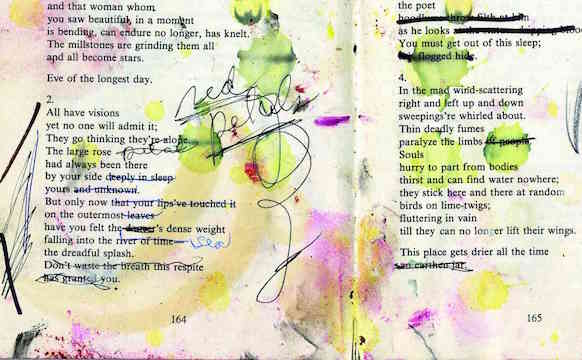 and that woman whom
you saw beautiful, in a moment
is bending, can endure no longer, has knelt.
The millstones are grinding them all
and all become stars.
Eve of the longest day.
red
petals
2.
All have visions
yet no one will admit it;
They go thinking they're alone.
The large rose petal
had always been there
by your side deeply in sleep
yours and unknown.
But only now that your lips've touched it
on the outermost leaves
have you felt the dancer's dense weight
falling into the river of time— sea
the dreadful splash.
Don't waste the breath this respite
has granted you.
164
the poet
hoodlums threw filth at him
as he looks blood
You must get out of this sleep;
flogged hide.
4.
In the mad wind-scattering
right and left up and down
sweepings're whirled about.
Thin deadly fumes
paralyze the limbs of people
Souls
hurry to part from bodies
thirst and can find water nowhere;
they stick here and there at random
birds on lime-twigs;
fluttering in vain
till they can no longer lift their wings.
This place gets drier all the time
an earthen jar.
165